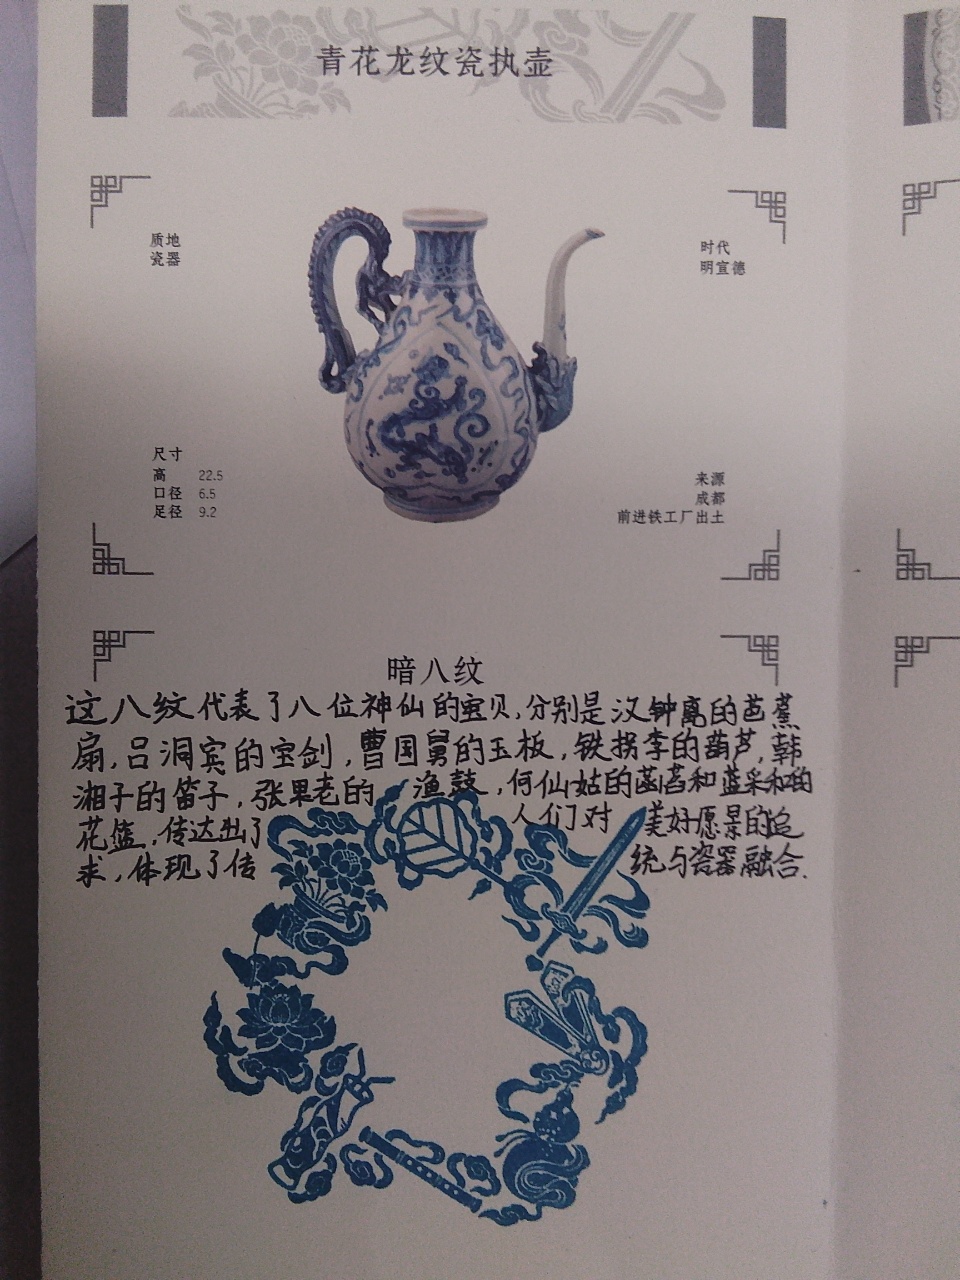 青花龙纹瓷执壶
质地
瓷器
时代
明宣德
尺寸
高 22.5
口径 6.5
足径 9.2
来源
成都
前进铁工厂出土
暗八纹
这八纹代表了八位神仙的宝贝,分别是汉钟离的芭蕉
扇,吕洞宾的宝剑,曹国舅的玉板,铁拐李的葫芦,韩
湘子的笛子,张果老的渔鼓,何仙姑的菡萏和蓝采和的
花篮,传达出了人们对美好愿景的追
求,体现了传统与瓷器融合.